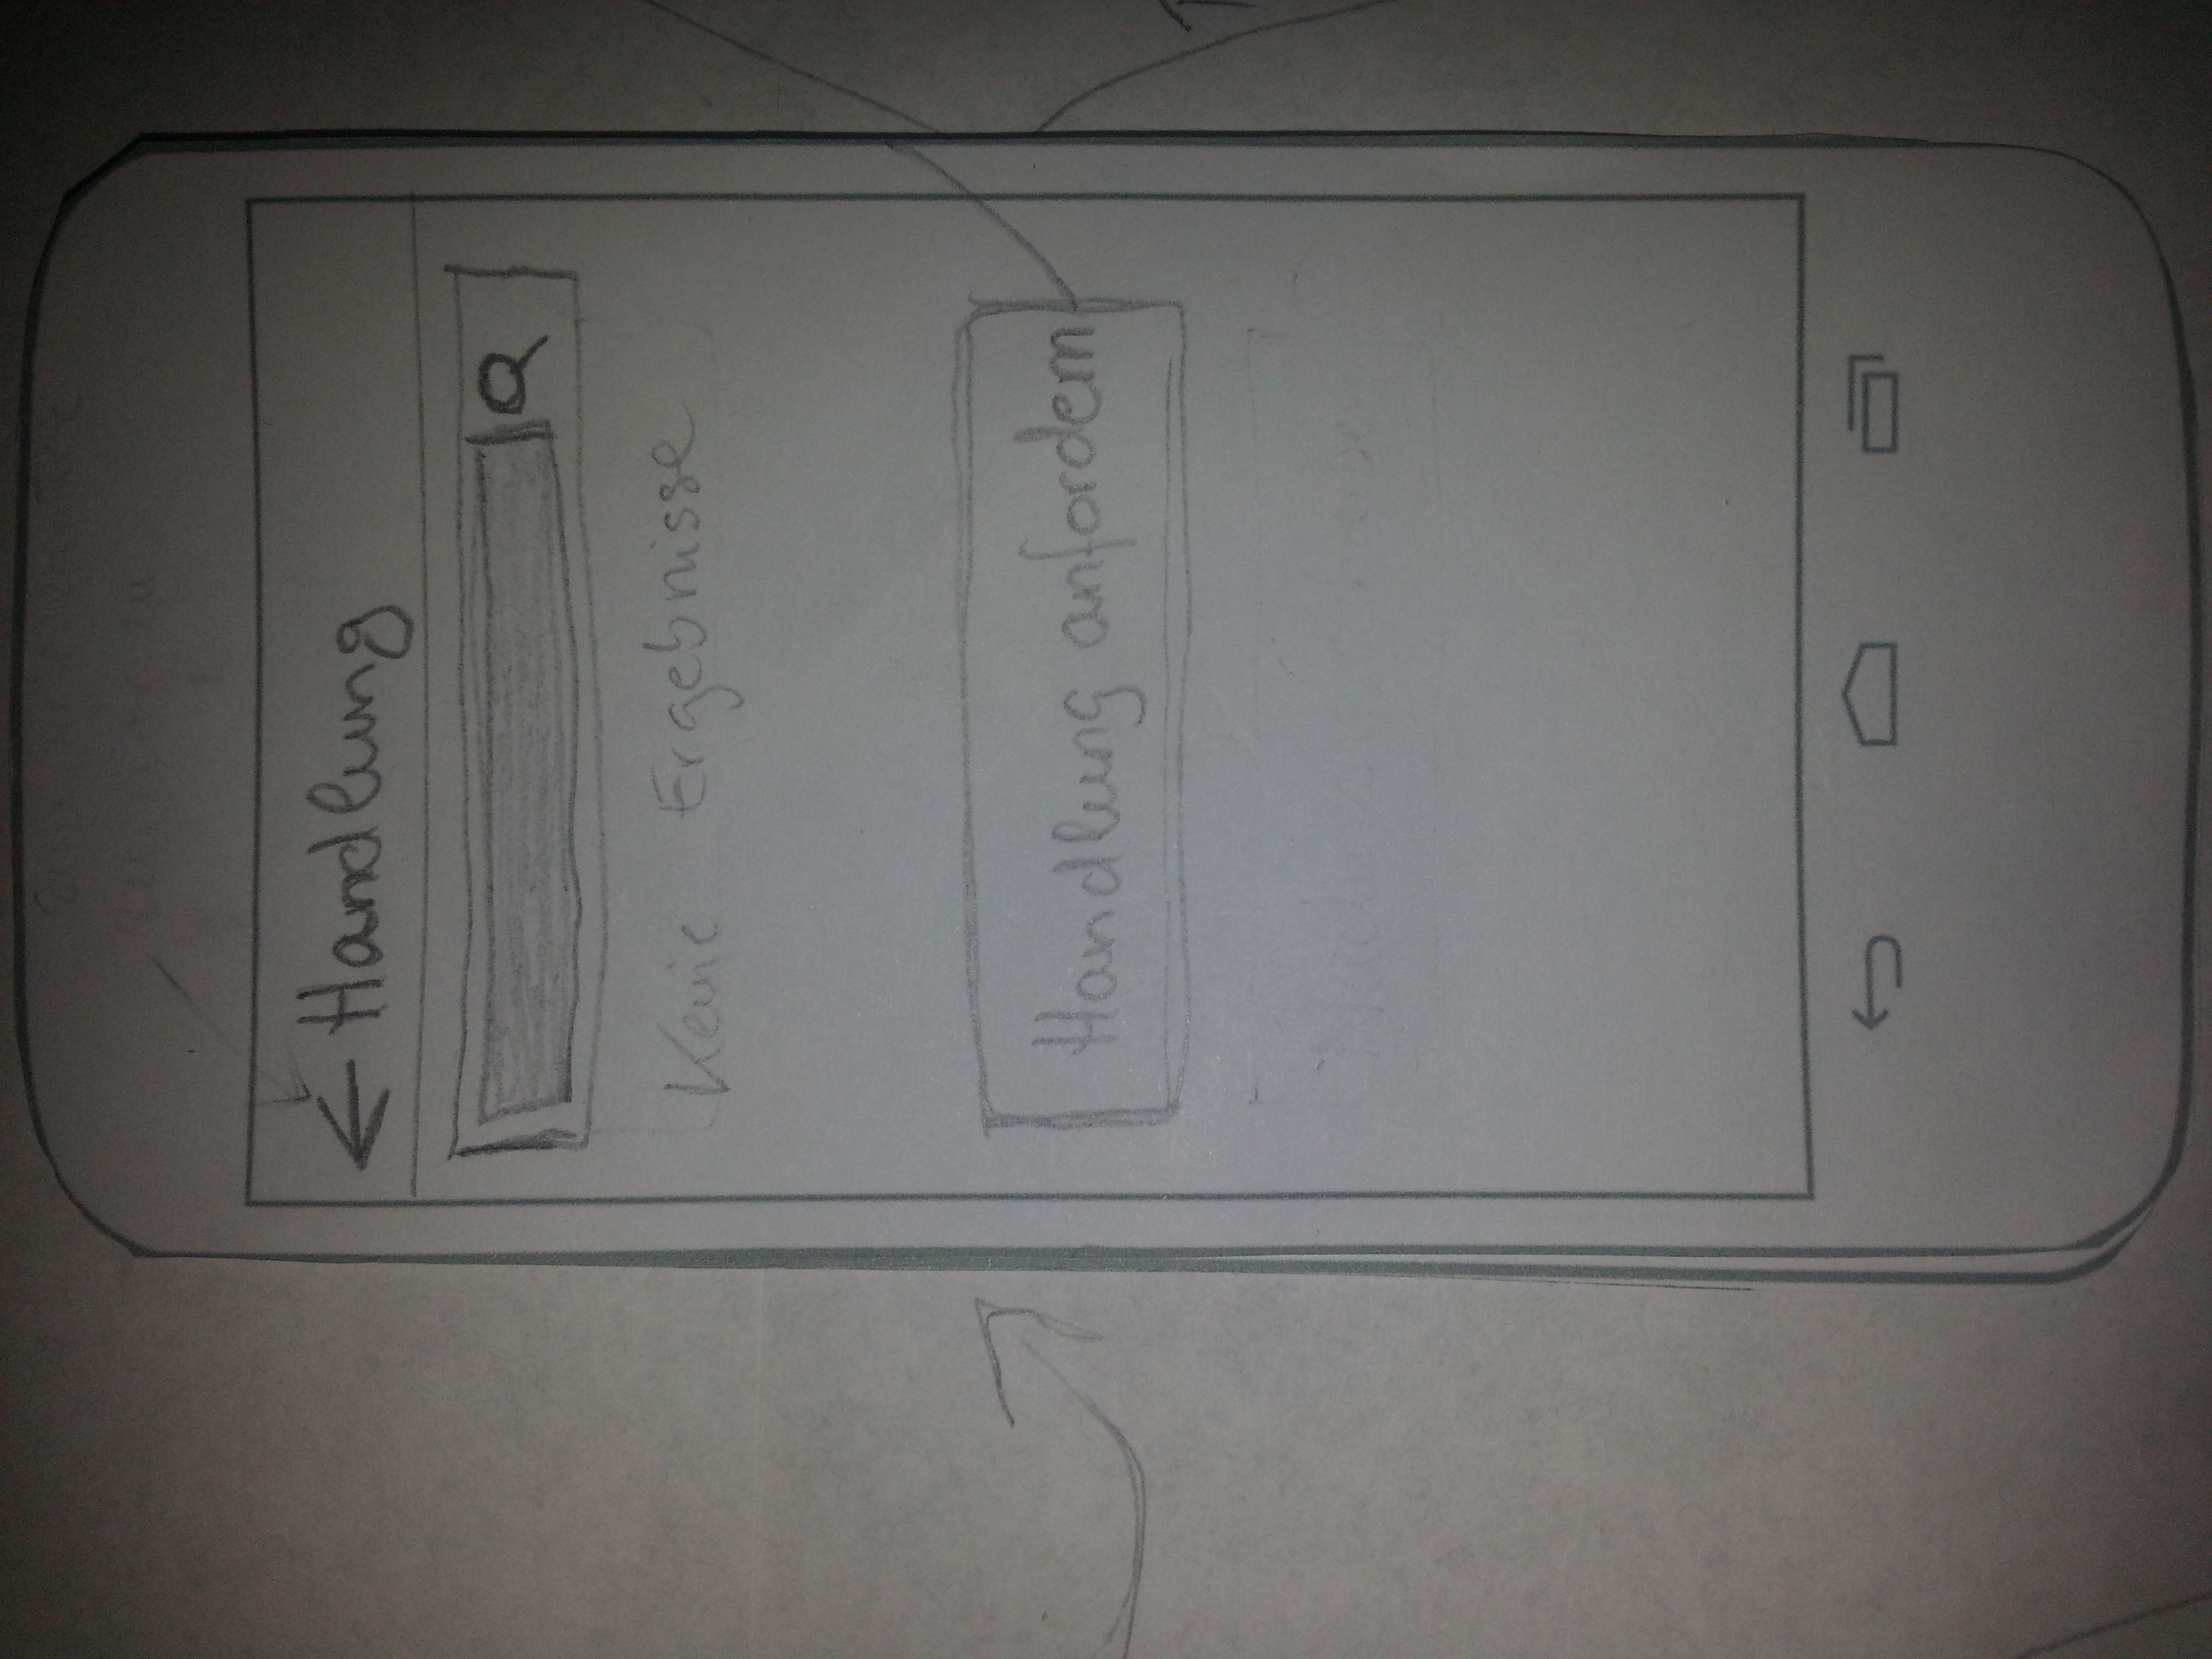 Handlung
Keine Ergebnisse
Handlung anfordern